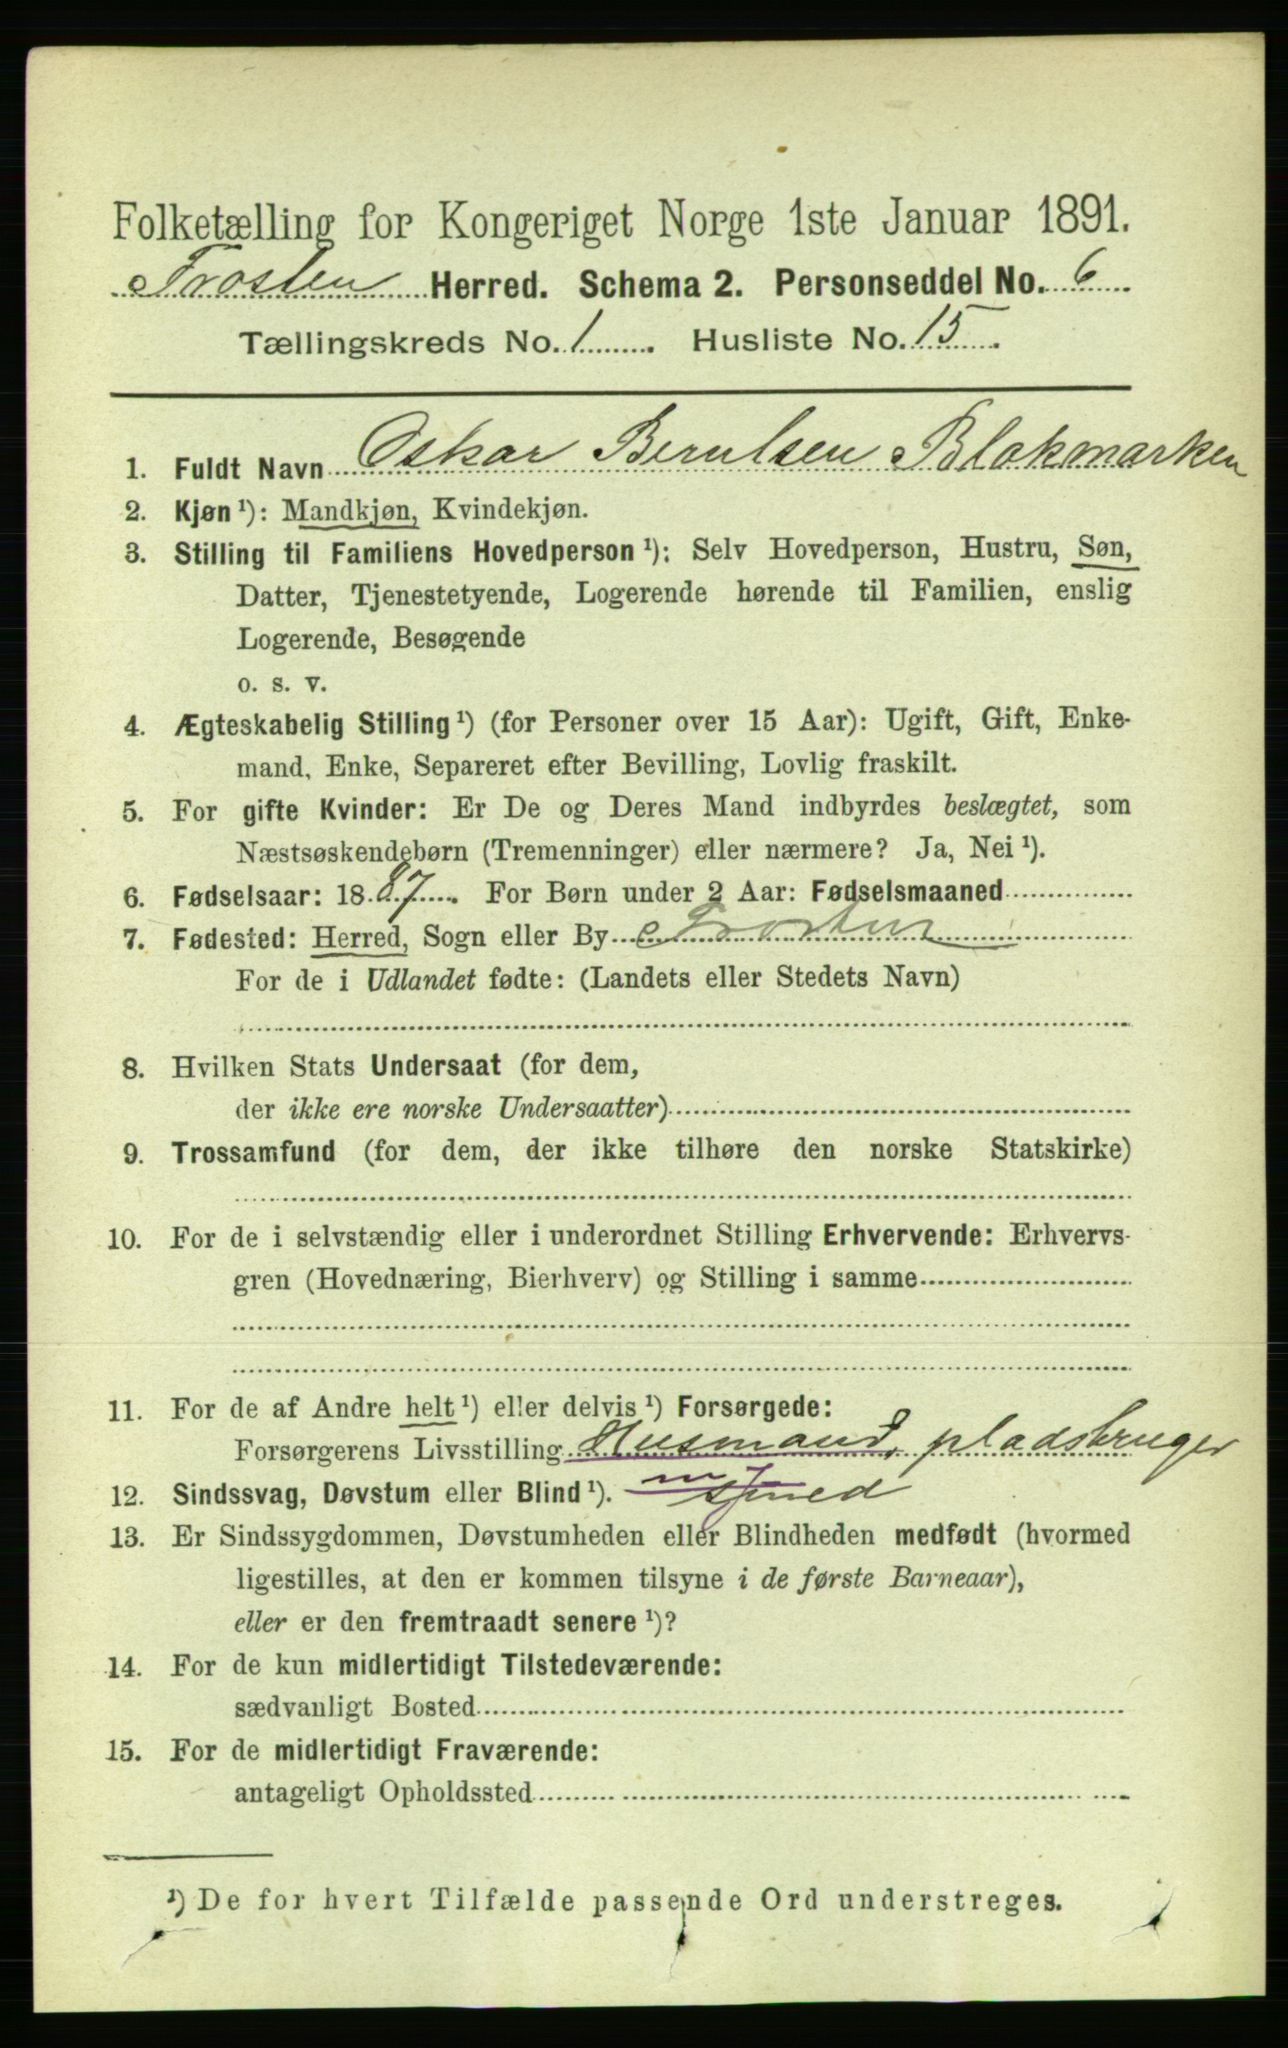 Folketælling for Kongeriget Norge 1ste Januar 1891.
Frosten Herred. Schema 2. Personseddel No. 6
Tællingskreds No. 1. Husliste No. 15.
1. Fuldt Navn Oskar Berulsen Blokmarken
2. Kjøn ¹): Mandkjøn, Kvindekjøn.
3. Stilling til Familiens Hovedperson ¹): Selv Hovedperson, Hustru, Søn,
Datter, Tjenestetyende, Logerende hørende til Familien, enslig
Logerende, Besøgende
o. s. v.
4. Ægteskabelig Stilling ¹) (for Personer over 15 Aar): Ugift, Gift, Enke-
mand, Enke, Separeret efter Bevilling, Lovlig fraskilt.
5. For gifte Kvinder: Er De og Deres Mand indbyrdes beslægtet, som
Næstsøskendebørn (Tremenninger) eller nærmere? Ja, Nei ¹).
6. Fødselsaar: 1887. For Børn under 2 Aar: Fødselsmaaned
7. Fødested: Herred, Sogn eller By Frosten
For de i Udlandet fødte: (Landets eller Stedets Navn)
8. Hvilken Stats Undersaat (for dem,
der ikke ere norske Undersaatter)
9. Trossamfund (for dem, der ikke tilhøre den norske Statskirke)
10. For de i selvstændig eller i underordnet Stilling Erhvervende: Erhvervs-
gren (Hovednæring, Bierhverv) og Stilling i samme
11. For de af Andre helt ¹) eller delvis ¹) Forsørgede:
Forsørgerens Livsstilling Husmand, pladsbruger
12. Sindssvag, Døvstum eller Blind ¹). m J
13. Er Sindssygdommen, Døvstumheden eller Blindheden medfødt (hvormed
ligestilles, at den er kommen tilsyne i de første Barneaar),
eller er den fremtraadt senere ¹)?
14. For de kun midlertidigt Tilstedeværende:
sædvanligt Bosted
15. For de midlertidigt Fraværende:
antageligt Opholdssted
¹) De for hvert Tilfælde passende Ord understreges.